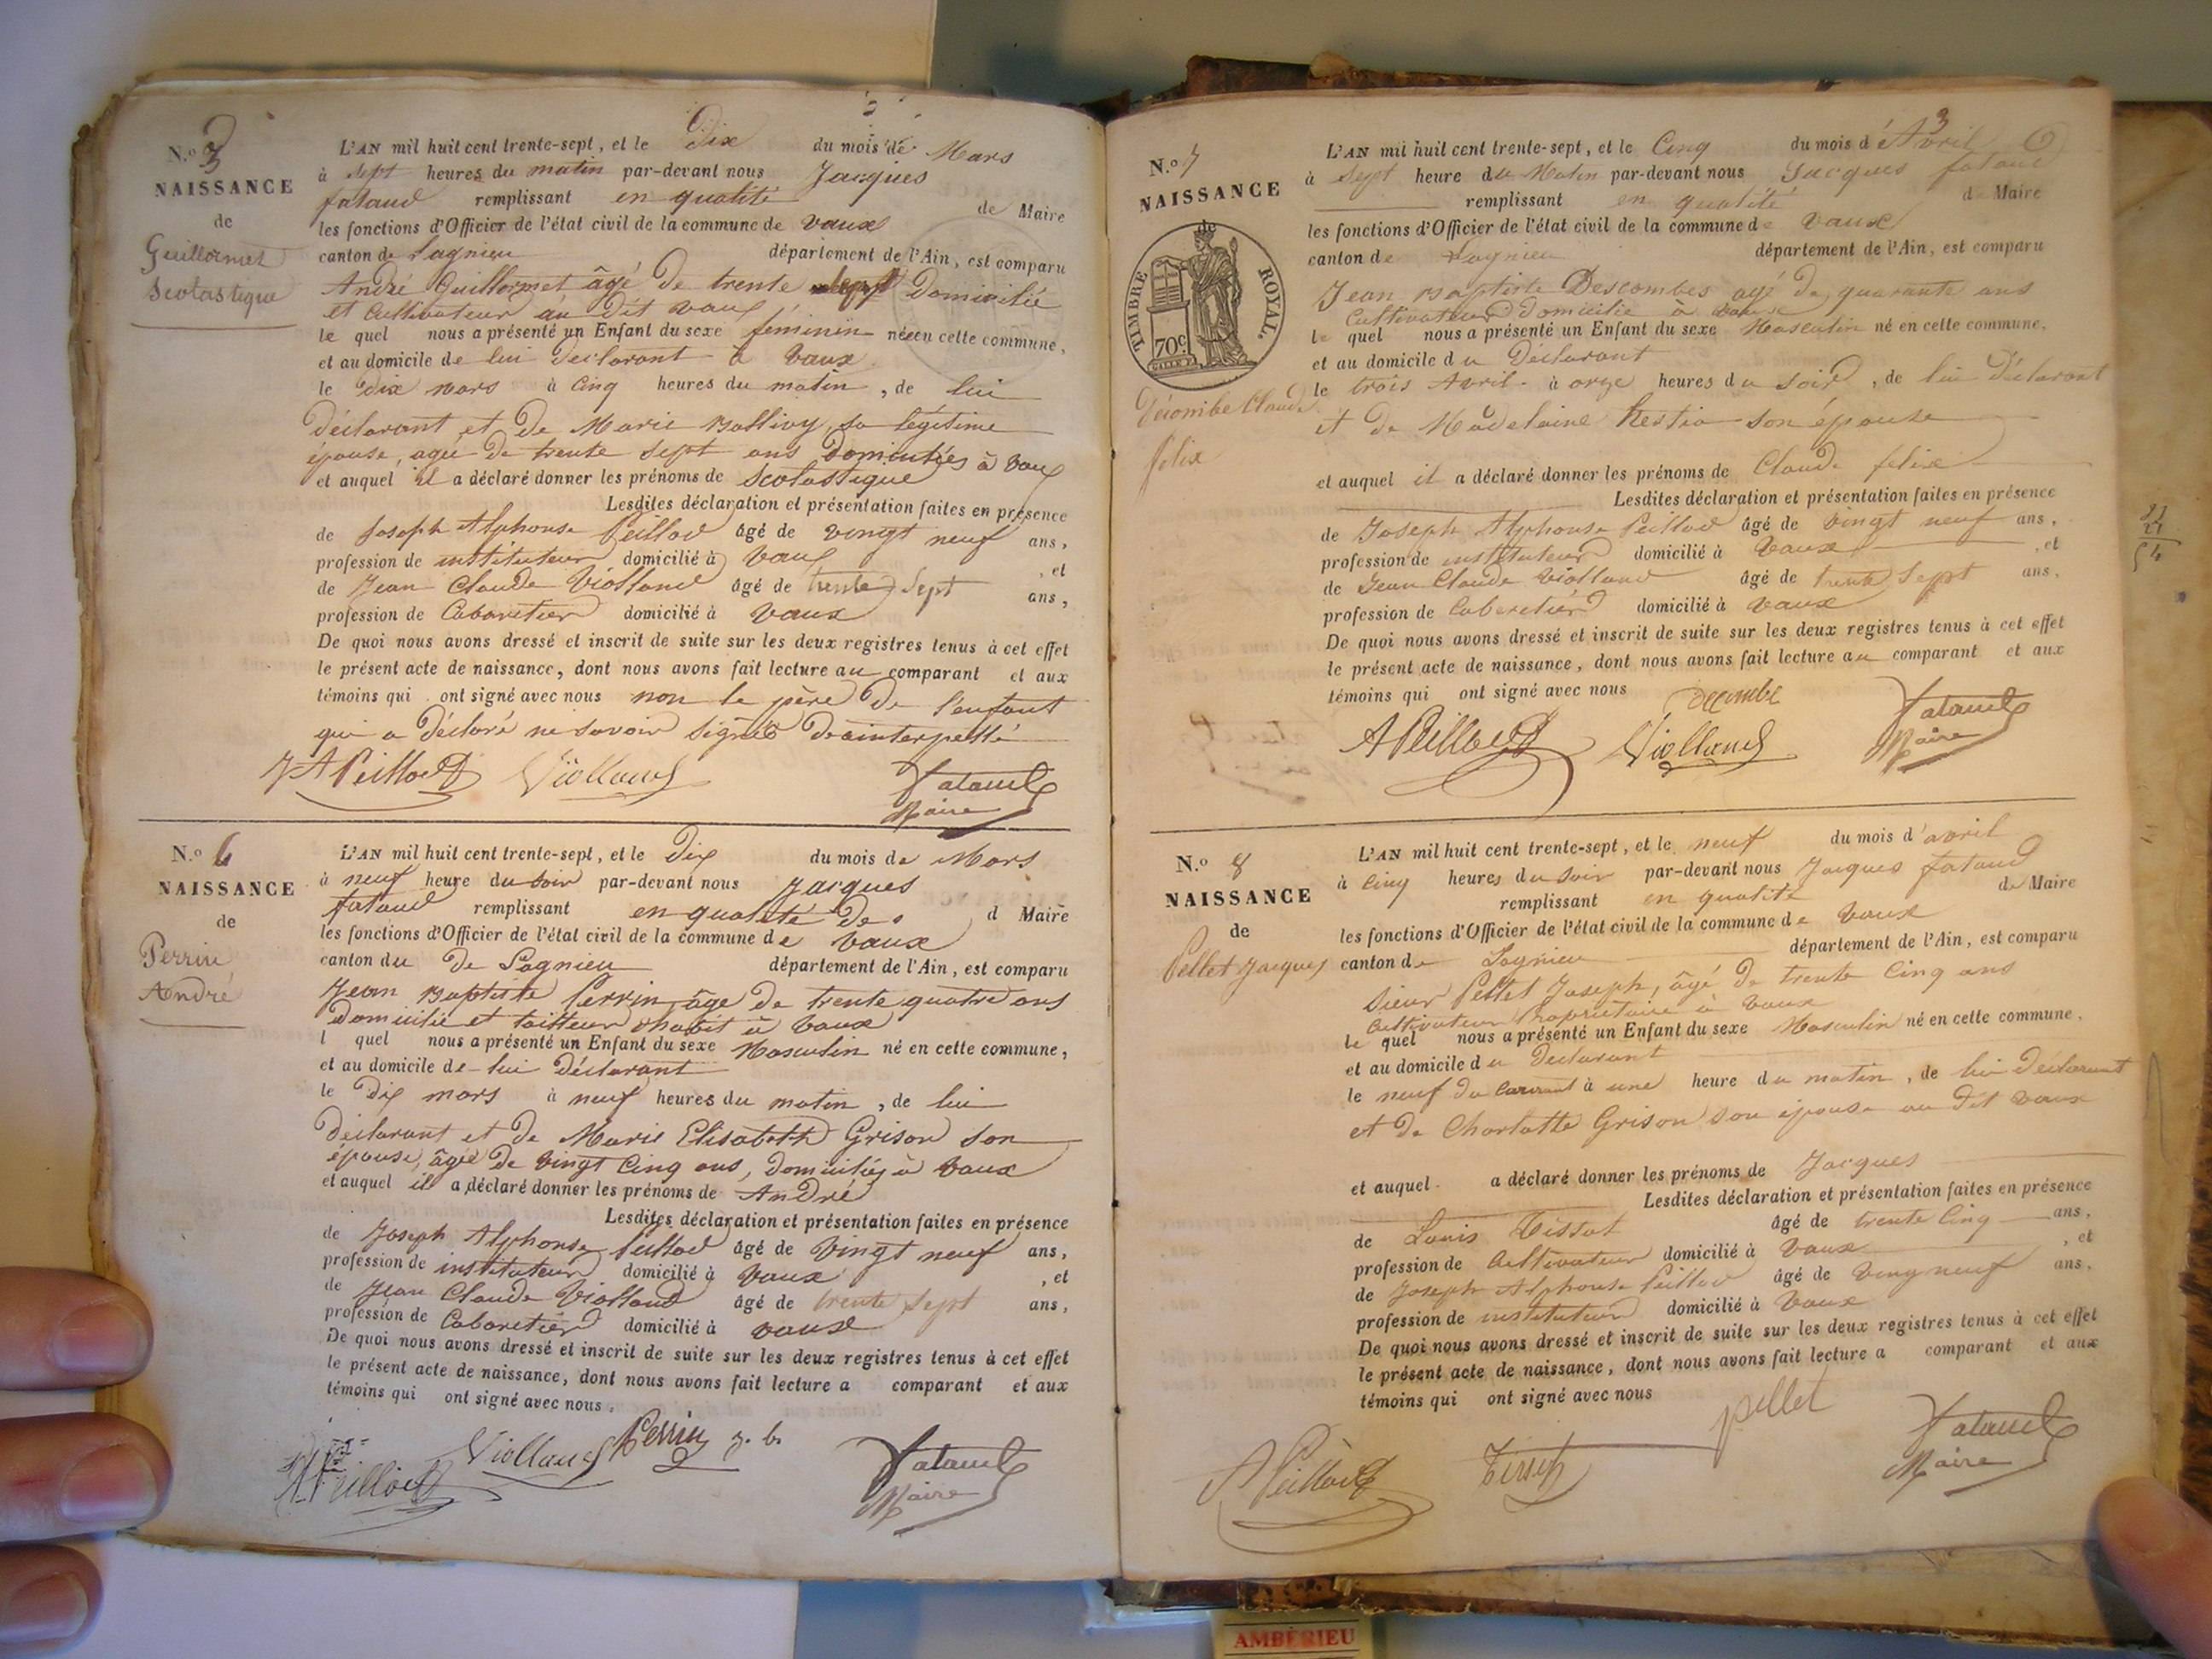 N.º 3
NAISSANCE
de
Guillermet
Scolastique
L'AN mil huit cent trente-sept, et le Dix du mois de Mars
à sept heures du matin par-devant nous Jacques
fataud remplissant en qualité de Maire
les fonctions d'Officier de l'état civil de la commune de vaux
canton de Lagnieu département de l'Ain, est comparu
André Guillermet âgé de trente sept Domicilié
et Cultivateur au dit vaux
le quel nous a présenté un Enfant du sexe féminin née en cette commune,
et au domicile de lui déclarant à vaux
le dix mars à Cinq heures du matin, de lui
déclarant et de Marie Ballivy, sa légitime
épouse, agée de trente sept ans Domiciliés à vaux
et auquel il a déclaré donner les prénoms de Scolastique
Lesdites déclaration et présentation faites en présence
de Joseph Alphonse Peilloud âgé de vingt neuf ans,
profession de instituteur domicilié à vaux, et
de Jean Claude Violland âgé de trente Sept ans,
profession de Cabaretier domicilié à vaux
De quoi nous avons dressé et inscrit de suite sur les deux registres tenus à cet effet
le présent acte de naissance, dont nous avons fait lecture au comparant et aux
témoins qui ont signé avec nous non le père de l'enfant
qui a déclaré ne savoir signer de ce interpellé
J A Peilloud Violland fataud
Maire
N.º 6
NAISSANCE
de
Perrin
André
L'AN mil huit cent trente-sept, et le Dix du mois de Mars
à neuf heure du soir par-devant nous Jacques
fataud remplissant en qualité de d Maire
les fonctions d'Officier de l'état civil de la commune de vaux
canton du de Lagnieu département de l'Ain, est comparu
Jean Baptiste Perrin, âgé de trente quatre ans
domicilié et tailleur d'habit à vaux
l quel nous a présenté un Enfant du sexe Masculin né en cette commune,
et au domicile de lui déclarant
le Dix mars à neuf heures du matin, de lui
déclarant et de Marie Elisabeth Grison son
épouse, âgée de vingt Cinq ans, domiciliés à vaux
et auquel il a déclaré donner les prénoms de André
Lesdites déclaration et présentation faites en présence
de Joseph Alphonse Peilloud âgé de vingt neuf ans,
profession de instituteur domicilié à vaux, et
de Jean Claude Violland âgé de trente sept ans,
profession de Cabaretier domicilié à vaux
De quoi nous avons dressé et inscrit de suite sur les deux registres tenus à cet effet
le présent acte de naissance, dont nous avons fait lecture a comparant et aux
témoins qui ont signé avec nous.
A Peilloud Violland Perrin j. b. fataud
Maire
3
N.º 7
NAISSANCE
de
TIMBRE ROYAL.
70c.
Décombe Claude
félix
L'AN mil huit cent trente-sept, et le Cinq du mois d'Avril
à Sept heure du Matin par-devant nous Jacques fataud
remplissant en qualité de Maire
les fonctions d'Officier de l'état civil de la commune de vaux
canton de Lagnieu département de l'Ain, est comparu
Jean Baptiste Descombes agé de quarante ans
Cultivateur Domicilié à vaux
le quel nous a présenté un Enfant du sexe Masculin né en cette commune,
et au domicile du Déclarant
le trois Avril à onze heures du soir, de lui déclarant
et de Madelaine son épouse
et auquel il a déclaré donner les prénoms de Claude felix
Lesdites déclaration et présentation faites en présence
de Joseph Alphonse Peilloud âgé de vingt neuf ans,
profession de instituteur domicilié à vaux, et
de Jean Claude Violland âgé de trente Sept ans,
profession de Cabaretier domicilié à vaux
De quoi nous avons dressé et inscrit de suite sur les deux registres tenus à cet effet
le présent acte de naissance, dont nous avons fait lecture au comparant et aux
témoins qui ont signé avec nous decombe
A Peilloud Violland fataud
Maire
N.º 8
NAISSANCE
de
Pellet Jacques
L'AN mil huit cent trente-sept, et le neuf du mois d'avril
à Cinq heures du soir par-devant nous Jacques fataud
remplissant en qualité de Maire
les fonctions d'Officier de l'état civil de la commune de vaux
canton de Lagnieu département de l'Ain, est comparu
Sieur Pellet Joseph, âgé de trente Cinq ans
Cultivateur Propriétaire à vaux
le quel nous a présenté un Enfant du sexe Masculin né en cette commune,
et au domicile du Déclarant
le neuf du Courrant à une heure du matin, de lui Déclarant
et de Charlotte Grison son épouse au dit vaux
et auquel a déclaré donner les prénoms de Jacques
Lesdites déclaration et présentation faites en présence
de Louis Tissot âgé de trente Cinq ans,
profession de Cultivateur domicilié à vaux, et
de Joseph Alphonse Peilloud âgé de vingneuf ans,
profession de instituteur domicilié à vaux
De quoi nous avons dressé et inscrit de suite sur les deux registres tenus à cet effet
le présent acte de naissance, dont nous avons fait lecture a comparant et aux
témoins qui ont signé avec nous pellet
A Peilloud fataud
Maire
AMBÉRIEU